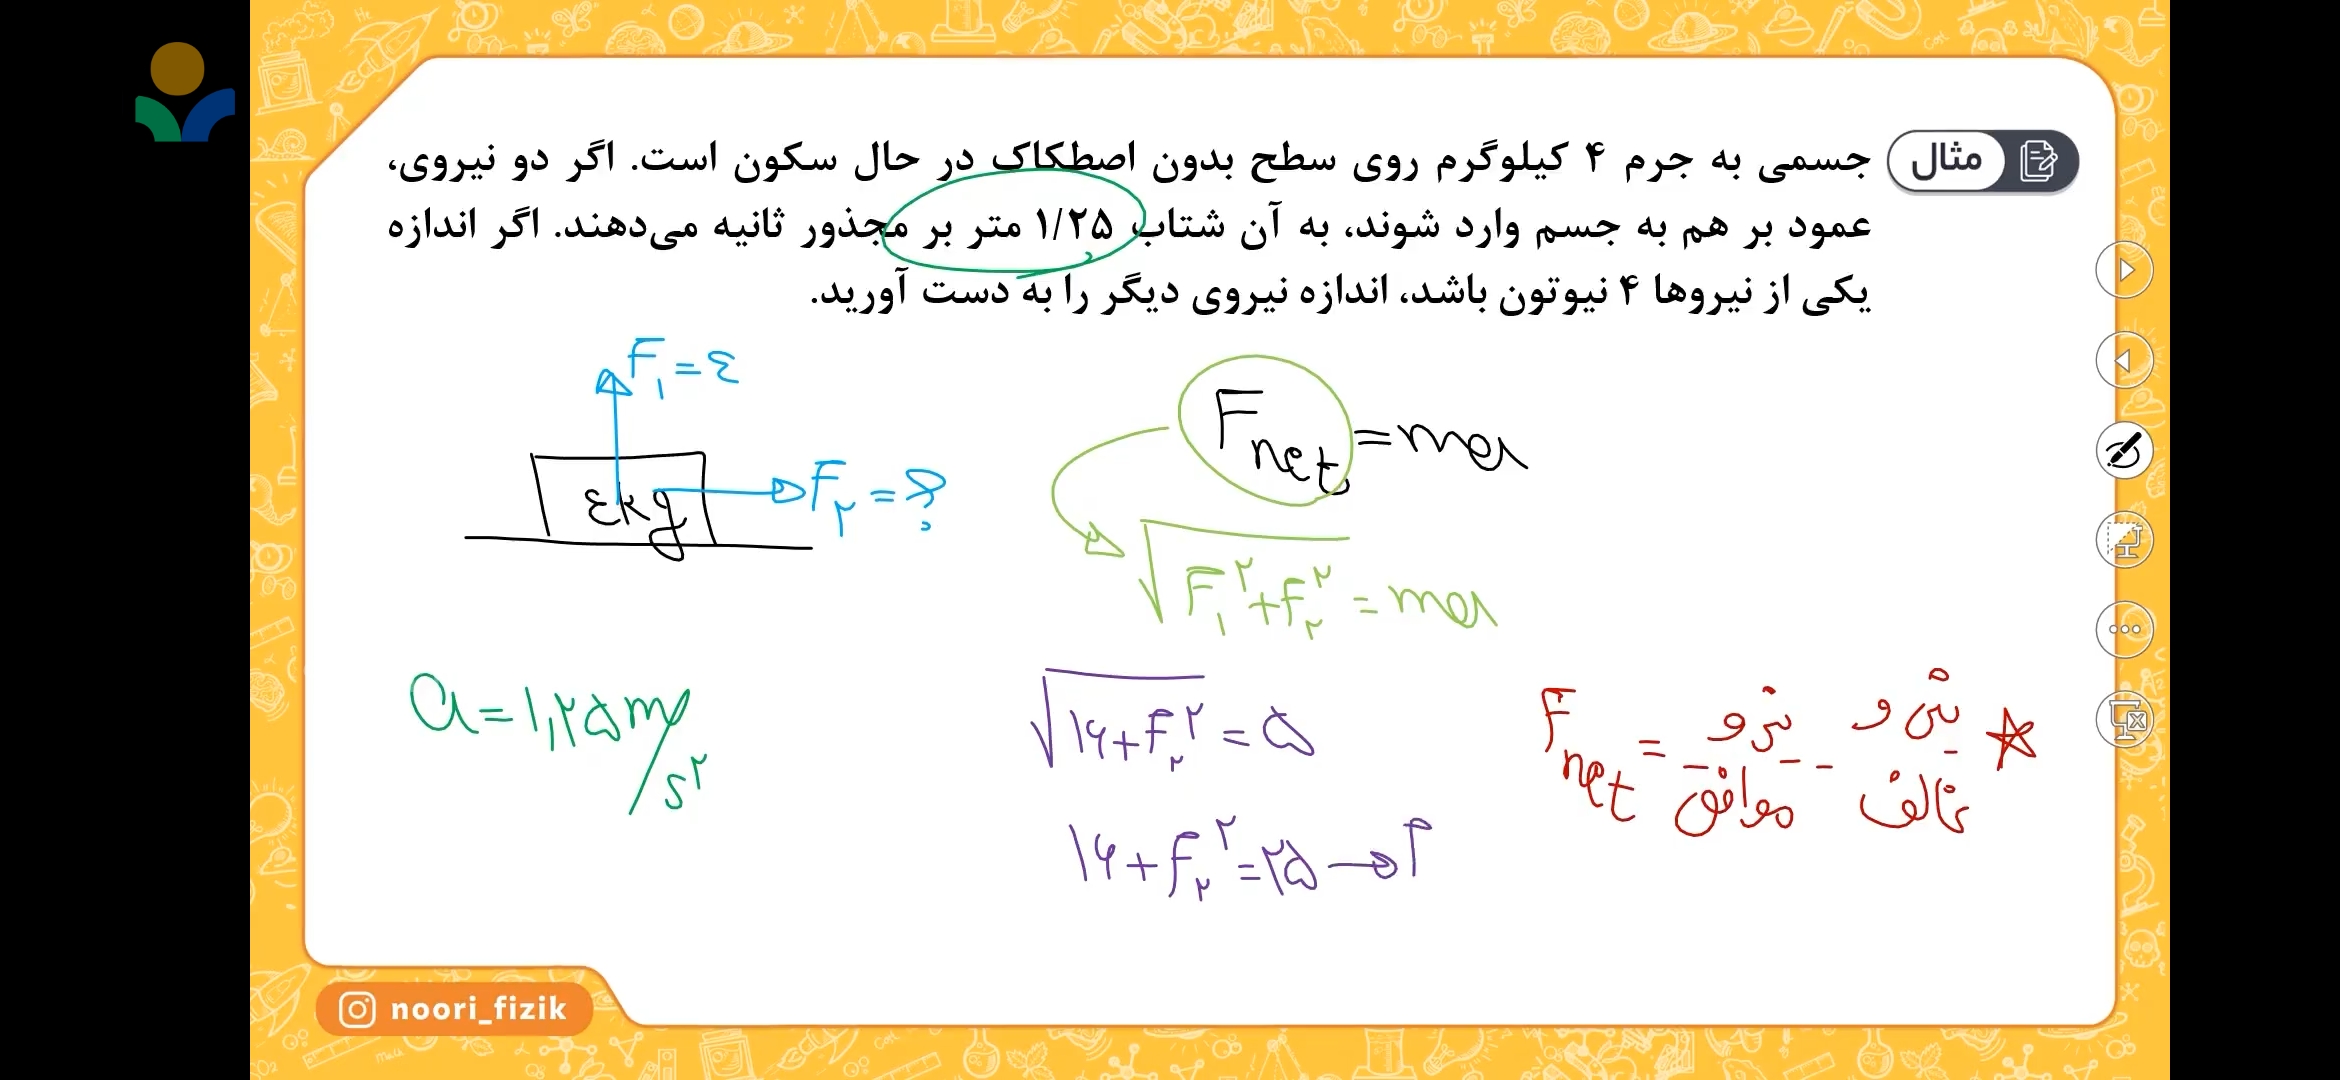 مثال
جسمی به جرم ۴ کیلوگرم روی سطح بدون اصطکاک در حال سکون است. اگر دو نیروی،
عمود بر هم به جسم وارد شوند، به آن شتاب ۱/۲۵ متر بر مجذور ثانیه می‌دهند. اگر اندازه
یکی از نیروها ۴ نیوتون باشد، اندازه نیروی دیگر را به دست آورید.
F۱ = ٤
٤kg
F۲ = ؟
Fnet = ma
√F۱^۲ + F۲^۲ = ma
a = ۱,۲۵ m/s^۲
√۱۶ + F۲^۲ = ۵
۱۶ + F۲^۲ = ۲۵ →
Fnet = نیرو موافق - نیرو مخالف
noori_fizik